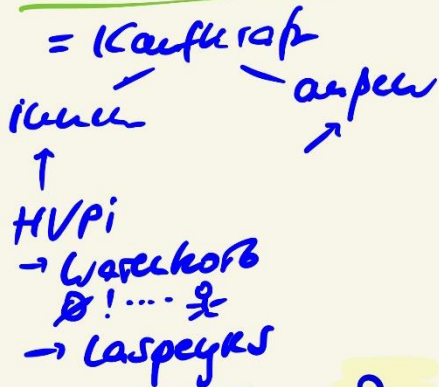 = Kaufkraft
innen außen
HVPi
→ Warenkorb
Ø! ....
→ Laspeyres